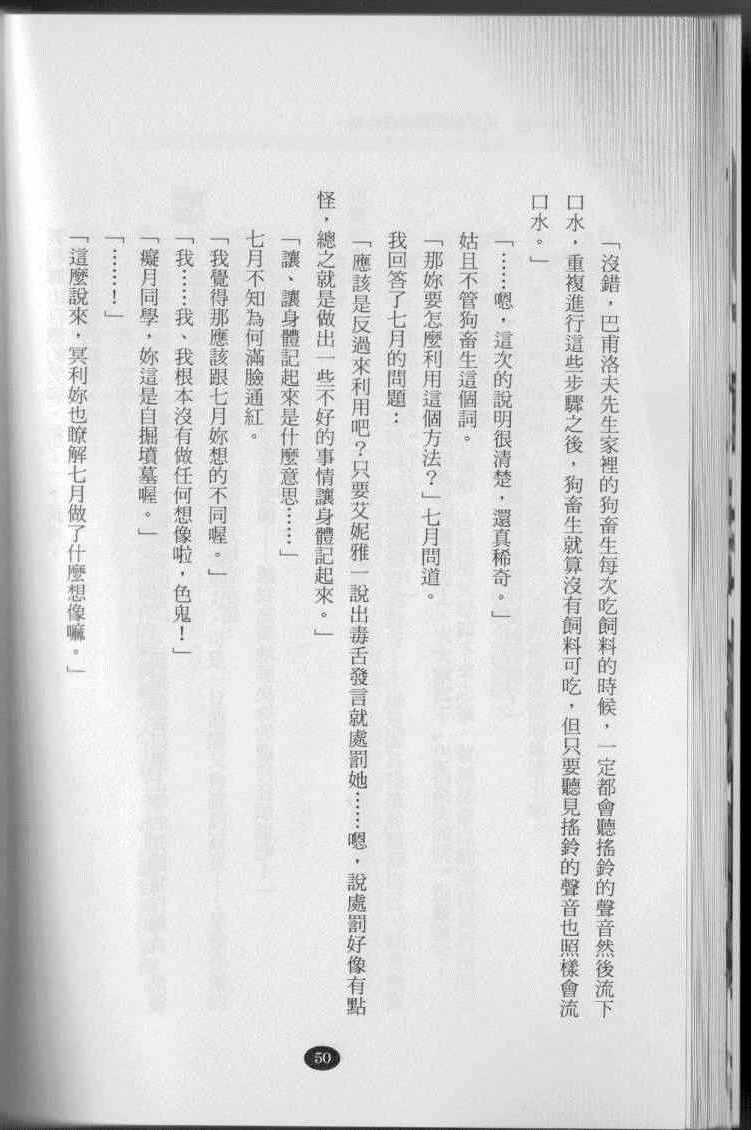 「沒錯，巴甫洛夫先生家裡的狗畜生每次吃飼料的時候，一定都會聽搖鈴的聲音然後流下
口水，重複進行這些步驟之後，狗畜生就算沒有飼料可吃，但只要聽見搖鈴的聲音也照樣會流
口水。」
「……嗯，這次的說明很清楚，還真稀奇。」
姑且不管狗畜生這個詞。
「那妳要怎麼利用這個方法？」七月問道。
我回答了七月的問題：
「應該是反過來利用吧？只要艾妮雅一說出毒舌發言就處罰她……嗯，說處罰好像有點
怪，總之就是做出一些不好的事情讓身體記起來。」
「讓、讓身體記起來是什麼意思……」
七月不知為何滿臉通紅。
「我覺得那應該跟七月妳想的不同喔。」
「我……我、我根本沒有做任何想像啦，色鬼！」
「癡月同學，妳這是自掘墳墓喔。」
「……！」
「這麼說來，冥利妳也瞭解七月做了什麼想像嘛。」
50